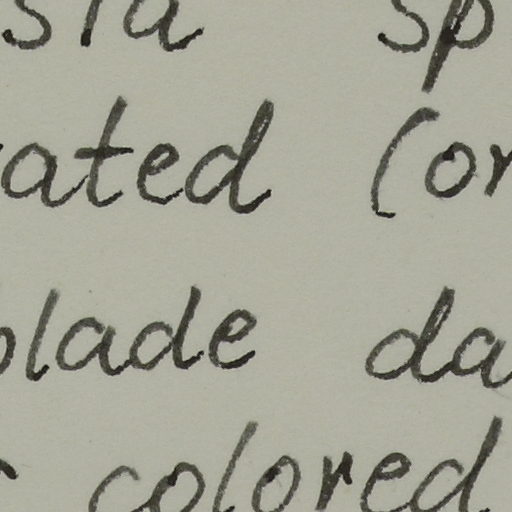 sia sp
ated (or
blade da
colored